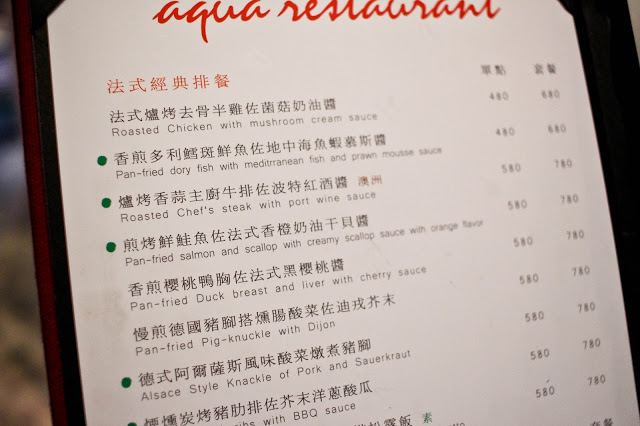 aqua restaurant
法式經典排餐 單點 套餐
法式爐烤去骨半雞佐菌菇奶油醬 480 680
Roasted Chicken with mushroom cream sauce
香煎多利鱈斑鮮魚佐地中海魚蝦慕斯醬 480 680
Pan-fried dory fish with meditrranean fish and prawn mousse sauce
爐烤香蒜主廚牛排佐波特紅酒醬 澳洲 580 780
Roasted Chef's steak with port wine sauce
煎烤鮮鮭魚佐法式香橙奶油干貝醬 580 780
Pan-fried salmon and scallop with creamy scallop sauce with orange flavor
香煎櫻桃鴨胸佐法式黑櫻桃醬 580 780
Pan-fried Duck breast and liver with cherry sauce
慢煎德國豬腳搭燻腸酸菜佐迪戎芥末 580 780
Pan-fried Pig-knuckle with Dijon
德式阿爾薩斯風味酸菜燉煮豬腳 580 780
Alsace Style Knackle of Pork and Sauerkraut
煙燻炭烤豬肋排佐芥末洋蔥酸瓜 580 780
ribs with BBQ sauce
松露飯 素 套餐